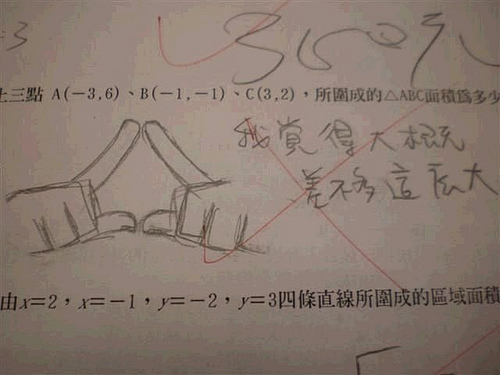 :3
360元
上三點 A(−3,6)、B(−1,−1)、C(3,2),所圍成的△ABC面積為多少
我覺得大概
差不多這麼大
由x=2,x=−1,y=−2,y=3四條直線所圍成的區域面積